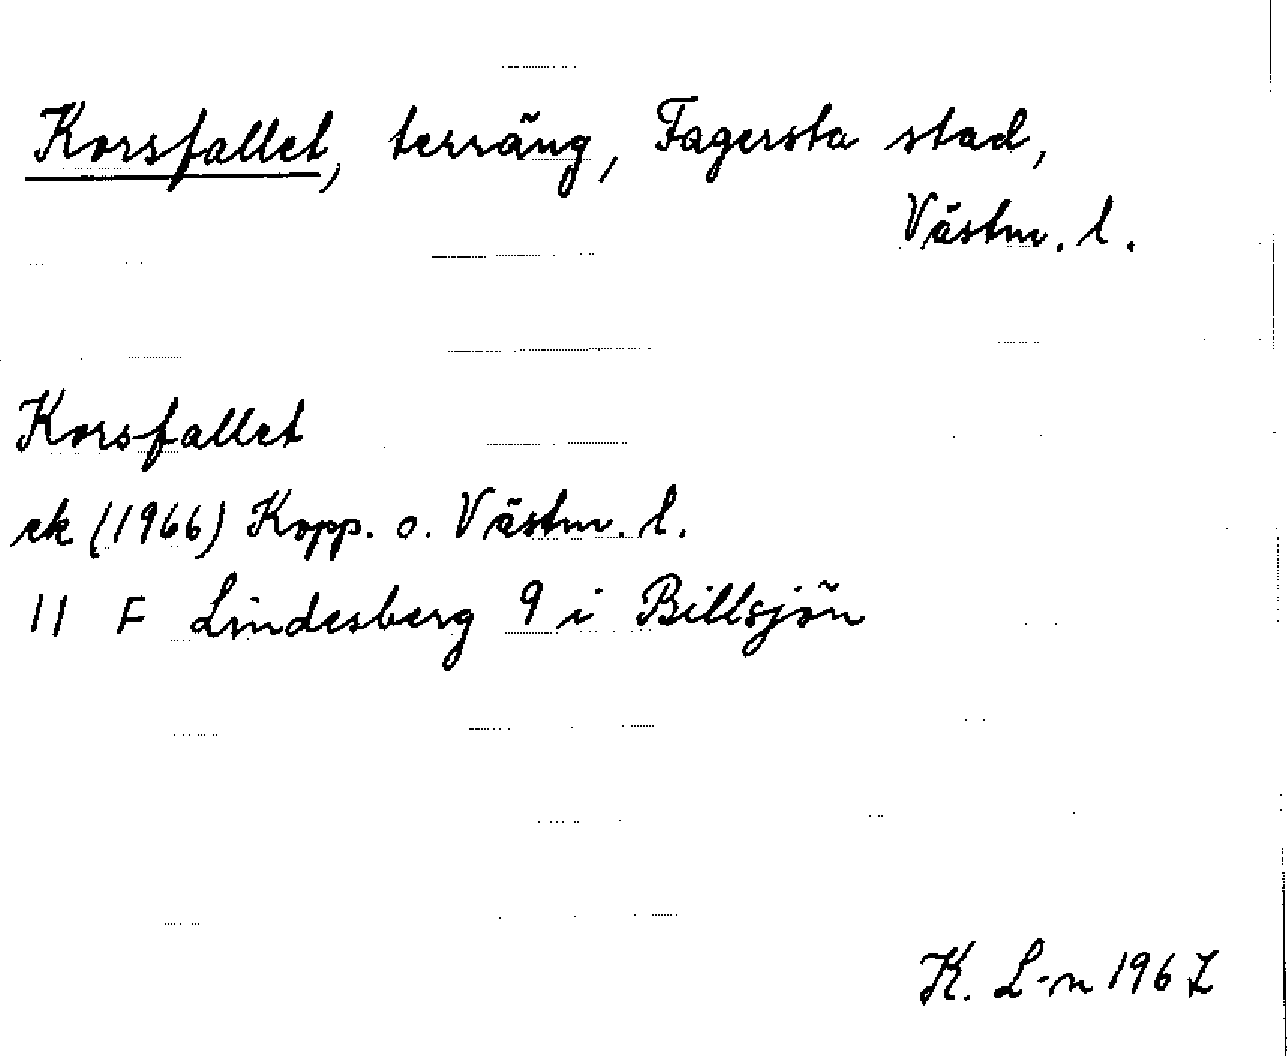 Korsfallet, terräng, Fagersta stad,
Västm. l.
Korsfallet
ek (1966) Kopp. o. Västm. l.
11 F Lindesberg 9 i Billsjön
K. L-n 1967